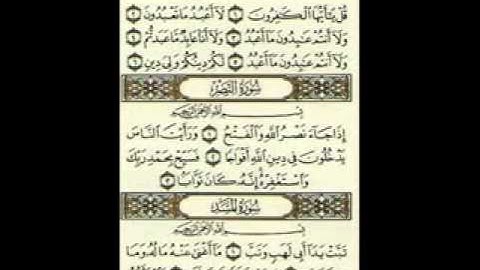 قُلْ يَٰٓأَيُّهَا ٱلْكَٰفِرُونَ ١ لَآ أَعْبُدُ مَا تَعْبُدُونَ ٢
وَلَآ أَنتُمْ عَٰبِدُونَ مَآ أَعْبُدُ ٣ وَلَآ أَنَا۠ عَابِدٌ مَّا عَبَدتُّمْ ٤
وَلَآ أَنتُمْ عَٰبِدُونَ مَآ أَعْبُدُ ٥ لَكُمْ دِينُكُمْ وَلِىَ دِينِ ٦
سُورَةُ النَّصْرِ
بِسْمِ ٱللَّهِ ٱلرَّحْمَٰنِ ٱلرَّحِيمِ
إِذَا جَآءَ نَصْرُ ٱللَّهِ وَٱلْفَتْحُ ١ وَرَأَيْتَ ٱلنَّاسَ
يَدْخُلُونَ فِى دِينِ ٱللَّهِ أَفْوَاجًا ٢ فَسَبِّحْ بِحَمْدِ رَبِّكَ
وَٱسْتَغْفِرْهُ إِنَّهُۥ كَانَ تَوَّابًۢا ٣
سُورَةُ المَسَد
بِسْمِ ٱللَّهِ ٱلرَّحْمَٰنِ ٱلرَّحِيمِ
تَبَّتْ يَدَآ أَبِى لَهَبٍ وَتَبَّ ١ مَآ أَغْنَىٰ عَنْهُ مَالُهُۥ وَمَا